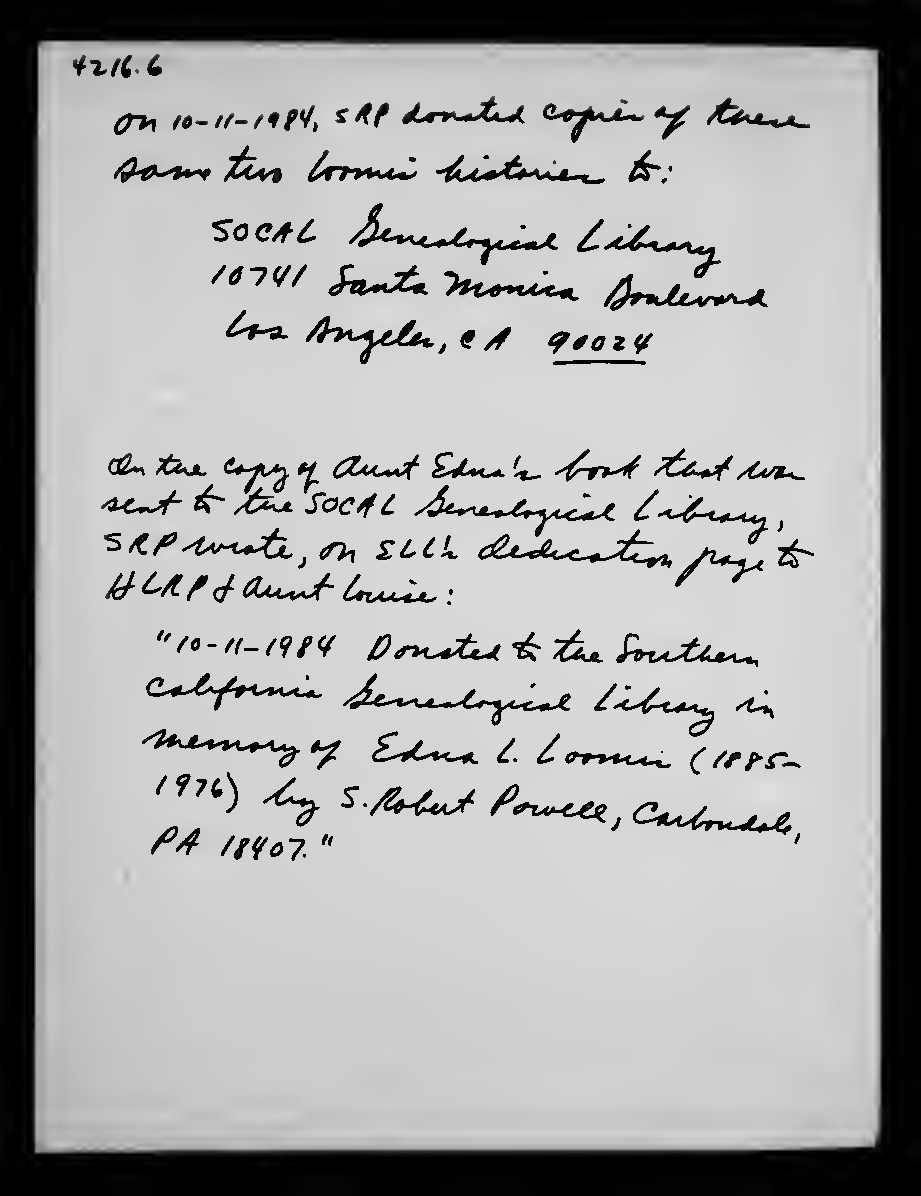 4216.6
On 10-11-1984, SRP donated copies of these
same two Loomis histories to:
SOCAL Genealogical Library
10741 Santa Monica Boulevard
Los Angeles, CA 90024
In the copy of Aunt Edna's book that was
sent to the SOCAL Genealogical Library,
SRP wrote, on ELL's dedication page to
HLRP & Aunt Louise:
"10-11-1984 Donated to the Southern
California Genealogical Library in
memory of Edna L. Loomis (1885-
1976) by S. Robert Powell, Carbondale,
PA 18407."